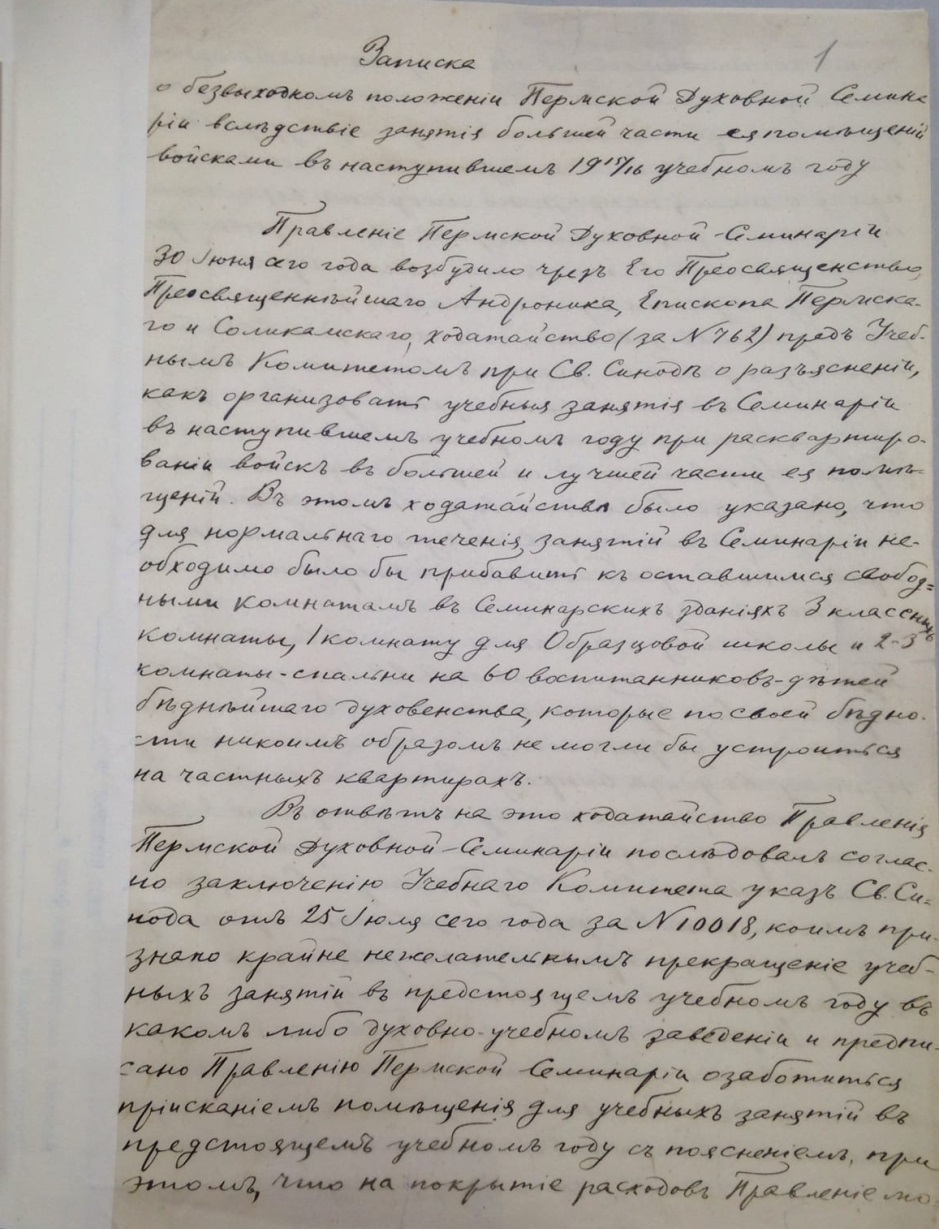 Записка
1
о безвыходномъ положеніи Пермской Духовной Семина
ріи вслѣдствіе занятія большей части ея помѣщеній
войсками въ наступившемъ 1915/16 учебномъ году
Правленіе Пермской Духовной Семинаріи
30 Іюня сего года возбудило чрезъ Его Преосвященство,
Преосвященнѣйшаго Андроника, Епископа Пермска-
го и Соликамскаго, ходатайство (за N 762) предъ Учеб-
нымъ Комитетомъ при Св. Синодѣ о разъясненіи,
какъ организовать учебныя занятія въ Семинаріи
въ наступившемъ учебномъ году при расквартиро-
ваніи войскъ въ большей и лучшей части ея помѣ-
щеній. Въ этомъ ходатайствѣ было указано, что
для нормальнаго теченія занятій въ Семинаріи не-
обходимо было бы прибавить къ оставшимся свобод=
ными комнатамъ въ Семинарскихъ зданіяхъ 3 классныхъ
комнаты, 1 комнату для Образцовой школы и 2-3
комнаты-спальни на 60 воспитанниковъ-дѣтей
бѣднѣйшаго духовенства, которые по своей бѣдно-
сти никоимъ образомъ не могли бы устроиться
на частныхъ квартирахъ.
Въ отвѣтъ на это ходатайство Правленія
Пермской Духовной Семинаріи послѣдовалъ соглас-
но заключенію Учебнаго Комитета указъ Св. Си=
нода отъ 25 Іюля сего года за N 10018, коимъ при-
знано крайне нежелательнымъ прекращеніе учеб-
ныхъ занятій въ предстоящемъ учебномъ году въ
какомъ либо духовно-учебномъ заведеніи и предпи-
сано Правленію Пермской Семинаріи озаботиться
пріисканіемъ помѣщенія для учебныхъ занятій въ
предстоящемъ учебномъ году съ поясненіемъ, при
этомъ, что на покрытіе расходовъ Правленіе мо-